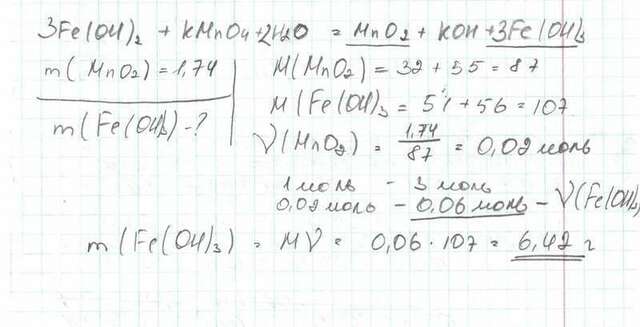 3Fe(OH)₂ + KMnO₄ + 2H₂O = MnO₂ + KOH + 3Fe(OH)₃
m(MnO₂) = 1,74
M(MnO₂) = 32 + 55 = 87
m(Fe(OH)₃) - ?
M(Fe(OH)₃ = 51 + 56 = 107
ν(MnO₂) = 1,74/87 = 0,02 моль
1 моль - 3 моль
0,02 моль - 0,06 моль - ν(Fe(OH)
m(Fe(OH)₃) = Mν = 0,06 · 107 = 6,42 г